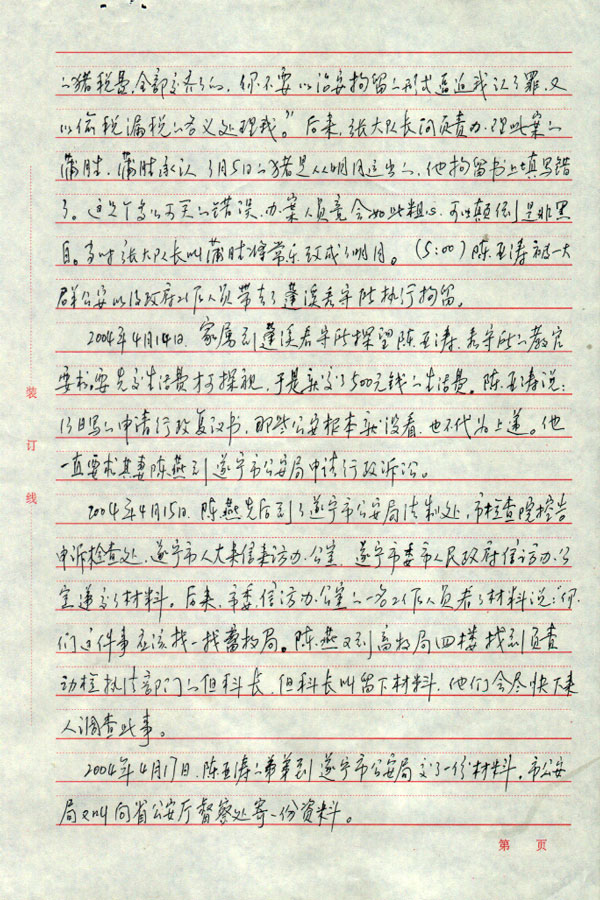 的猪税是全部交齐了的，你不要以治安拘留的形式逼迫我认了罪，又
以偷税漏税的名义处理我。”后来，张大队长问负责办理此案的
蒲胜，蒲胜承认3月5日的猪是从明月运出的，他拘留书上填写错
了。这个多么可笑的错误，办案人员竟会如此粗心，可以颠倒是非黑
白。当时张大队长叫蒲胜将常乐改成了明月。（5:00）陈亚涛被一大
群公安以及政府工作人员带去了蓬溪看守所执行拘留。
2004年4月14日，家属到蓬溪看守所探望陈亚涛，看守所的教官
要求要先交生活费才可探视，于是就交了500元钱的生活费。陈亚涛说：
13日写的申请行政复议书，那些公安根本就没看，也不代为上递。他
一直要求其妻陈燕到遂宁市公安局申请行政诉讼。
2004年4月15日，陈燕先后到了遂宁市公安局法制处，市检查院控告
申诉检查处，遂宁市人大来信来访办公室，遂宁市委市人民政府信访办公
室递交了材料。后来，市委信访办公室的一名工作人员看了材料说：“你
们这件事应该找一找畜牧局。陈燕又到畜牧局四楼找到负责
动检执法部门的但科长，但科长叫留下材料，他们会尽快下来
人调查此事。
2004年4月17日，陈亚涛的弟弟到遂宁市公安局交了一份材料，市公安
局又叫向省公安厅督察处寄一份资料。
装
订
线
第 页